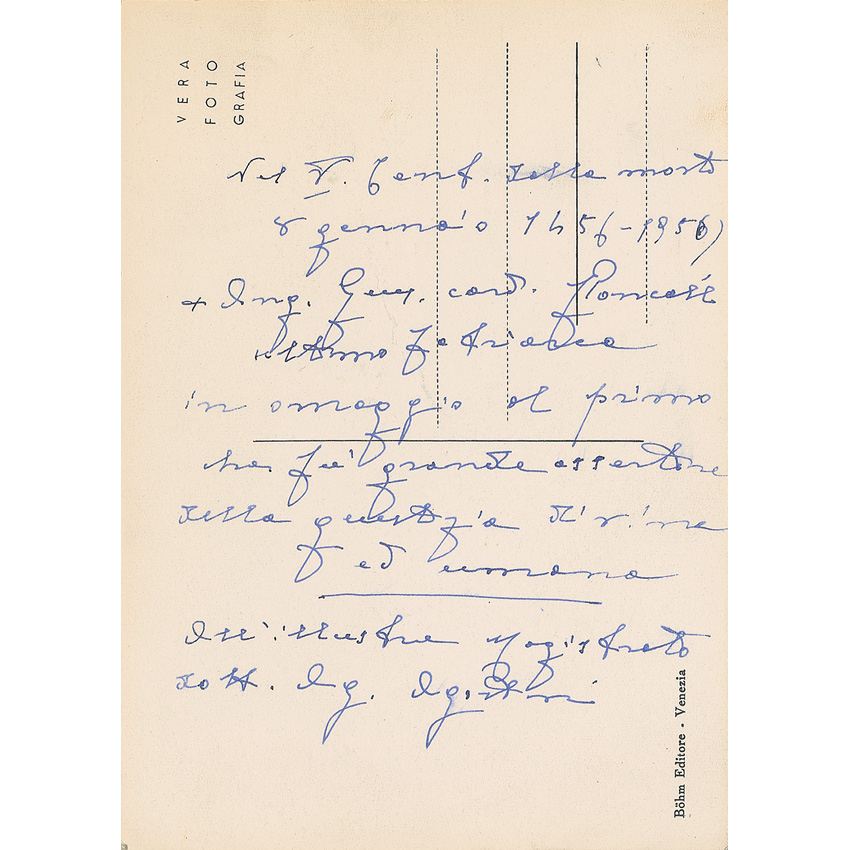 VERA
FOTO
GRAFIA
Nel V. Cent. della morte
8 gennaio 1456-1956)
+ Ang. Gius. card. Roncalli
ultimo Patriarca
in omaggio al primo
che fu' grande assertore
della giustizia divina
ed umana
All'illustre Magistrato
dott. Ag. Agostini
Böhm Editore - Venezia